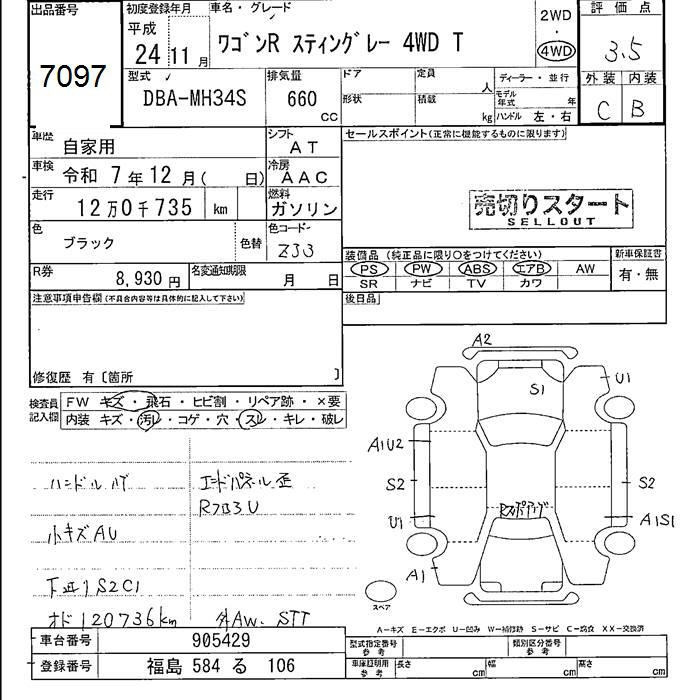 出品番号
7097
初度登録年月
平成
24 11 月
車名・グレード
ワゴンR スティングレー 4WD T
2WD
・
4WD
評価点
3.5
外装 内装
C B
型式
DBA-MH34S
排気量
660
CC
ドア
定員
人
形状
積載
kg
ディーラー・並行
モデル年式
年
ハンドル 左・右
車歴
自家用
シフト
AT
車検
令和 7年 12月( 日)
冷房
AAC
走行
12万0千735 km
燃料
ガソリン
色
ブラック
色替
色コード
ZJ3
R券
8,930円
名変通知期限
月 日
セールスポイント(正常に機能するものに限ります)
売切りスタート
SELLOUT
装備品 (純正品に限り○をつけてください)
PS PW ABS エアB AW
SR ナビ TV カワ
新車保証書
有・無
後日品
注意事項申告欄 (不具合内容等は具体的に記入して下さい)
修復歴 有〔箇所 〕
検査員記入欄
FW キズ・飛石・ヒビ割・リペア跡・×要
内装 キズ・汚レ・コゲ・穴・スレ・キレ・破レ
ハンドルハゲ
小キズAU
下回りS2C1
オド120736km
エンドパネル歪
Rフロ3U
外AW、STT
A2
S1
U1
A1U2
S2
S2
U1
A1S1
A1
スペア
A-キズ E-エクボ U-凹み W-補修跡 S-サビ C-腐食 XX-交換済
車台番号
905429
登録番号
福島 584 る 106
型式指定番号
参考
類別区分番号
参考
車庫証明用
参考
長さ
cm
幅
cm
高さ
cm